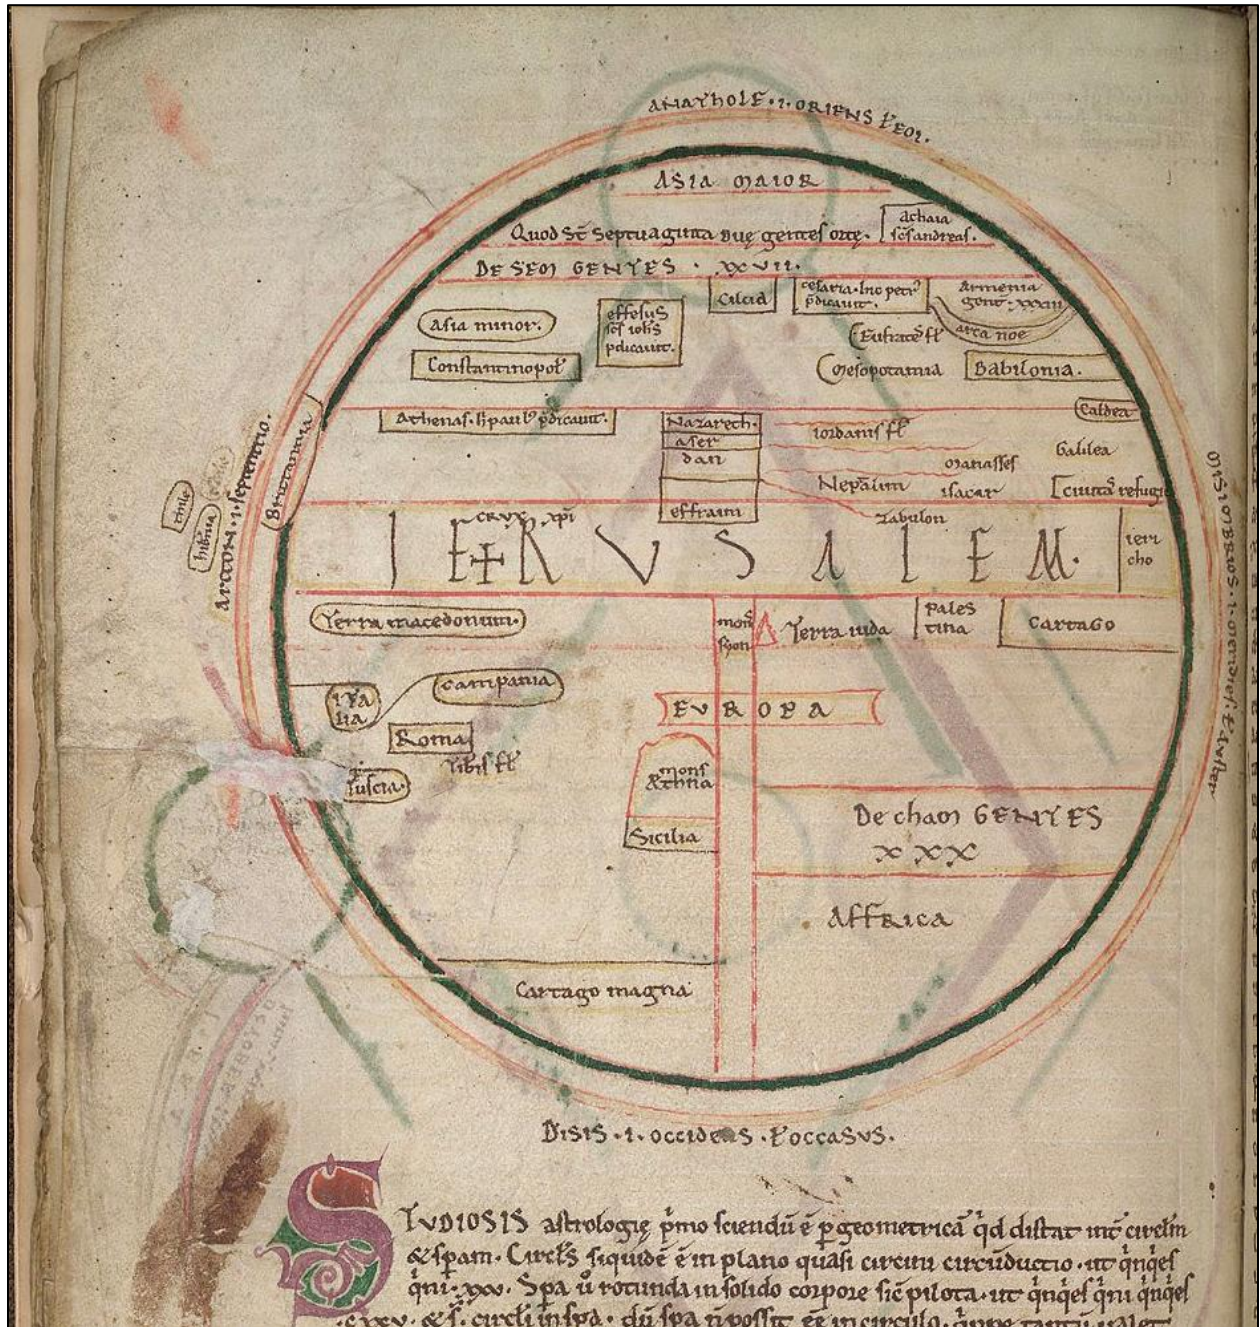 ANATHOLE · I · ORIENS ł EOI.
ASIA MAIOR
Quod St Septuaginta duę gentes ortę.
Achaia
scs andreas.
DE SEM GENTES · XXVII.
Cilcid
cesaria · hic petr'
pdicauit.
Armenia
gent · xxxiii
arca noe
effesus
scs ioh's
pdicauit.
Asia minor.
Eufrates fl'
Constantinopol'
Mesopotamia
Babilonia.
Caldea
Athenas · h paul' pdicauit.
Nazareth.
aser
dan
effraim
iordanis fl'
Galilea
manasses
Neptalim
isacar
ciuitas refugii
zabulon
Britannia
ARCTON · I · septentrio.
hibnia
tile
CRUX xpi
IERUSALEM.
ieri
cho
Terra macedonum.
mons
syon
Terra iuda
Pales
tina
Cartago
MISIMBRIOS · I · meridies · ł auster
Campania
ITA
lia
EUROPA
Roma
Tibis fl'
Tuscia.
mons
ethna
Sicilia
De cham GENTES
XXX
AFFRICA
Cartago magna
DISIS · I · OCCIDENS · ł OCCASUS.
STUDIOSIS astrologię pmo sciendū ē p geometricā qd distat int circlm
& spam. Circls siquidē ē in plano quasi circini circūductio · ut qnqes
qni · xxv. Spa u rotunda in solido corpore sic pilota · ut qnqes qni qnqes